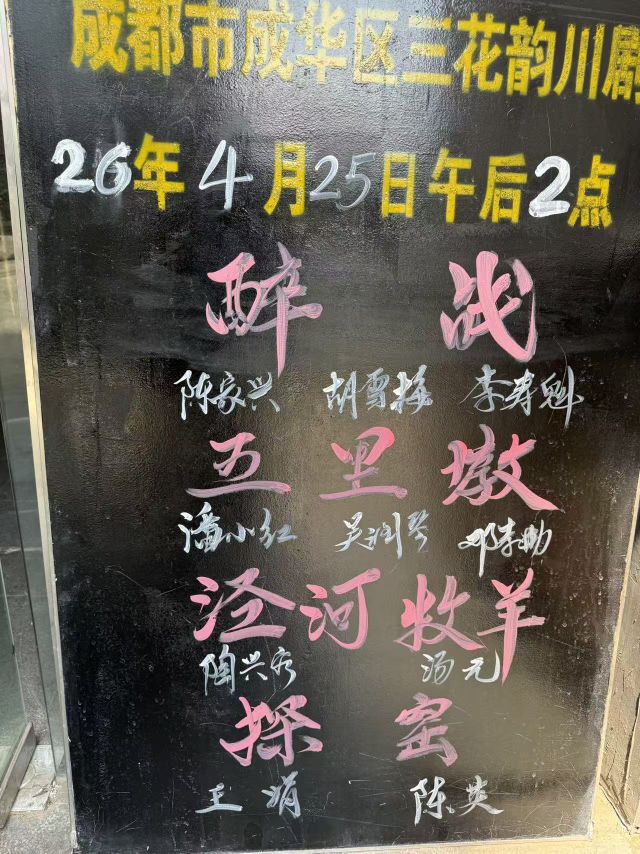 成都市成华区三花韵川剧
26年4月25日午后2点
醉战
陈家兴 胡雪梅 李寿魁
五里墩
潘小红 吴润琴
泾河牧羊
陶兴容 汤元
探窑
王娟 陈英